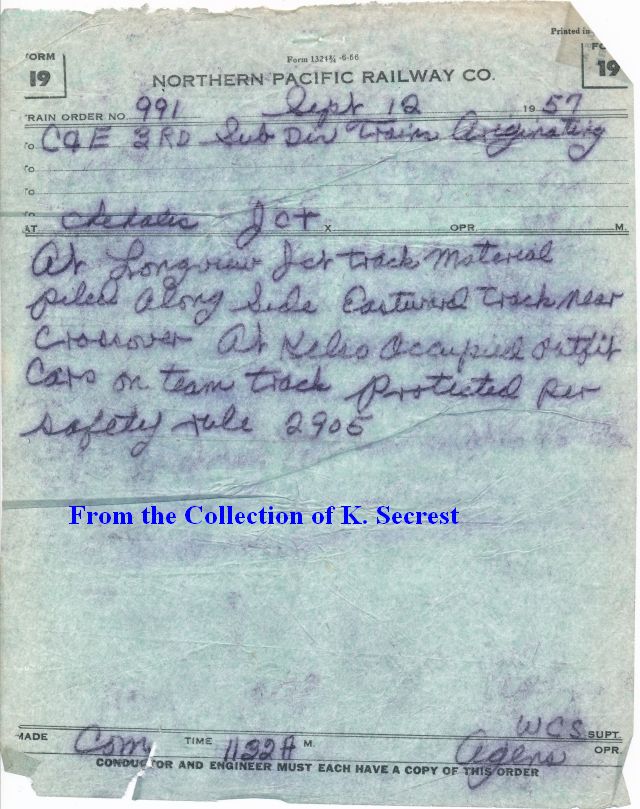 Printed in
FORM
19
Form 1321¾ -6-56
19
NORTHERN PACIFIC RAILWAY CO.
TRAIN ORDER NO. 991 Sept 12 19 57
To C&E 3RD Sub Div Train Originating
To
To
To
AT Chehalis Jct X OPR. M.
At Longview Jct track material
piled Along Side Eastward Track near
Crossover At Kelso Occupied outfit
Cars on team track Protected per
safety rule 2905
From the Collection of K. Secrest
WCS SUPT.
MADE Com TIME 1132A M. Agens OPR.
CONDUCTOR AND ENGINEER MUST EACH HAVE A COPY OF THIS ORDER